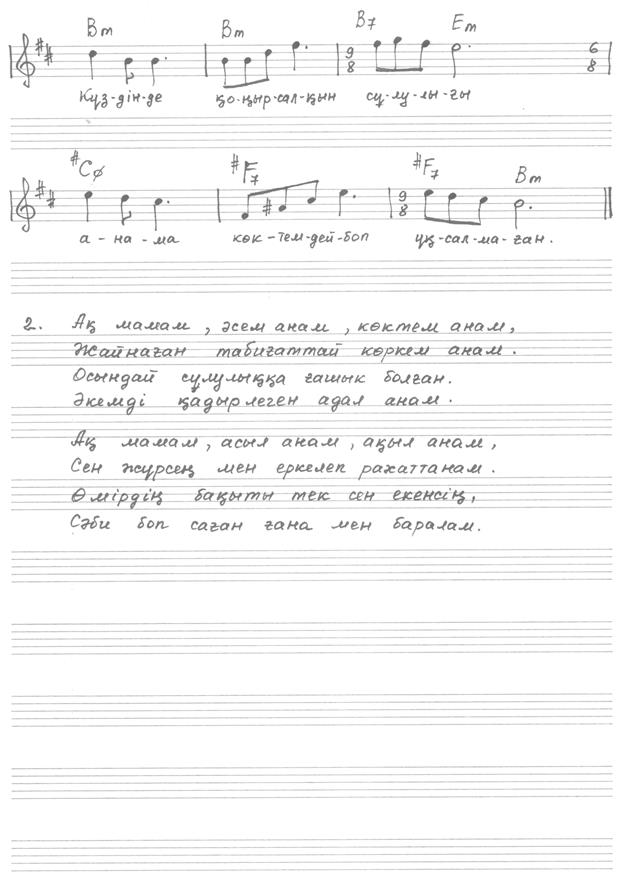 Bm Bm B7 Em
9/8 6/8
Күз-дін-де қо-ңыр-сал-қын сұ-лу-лы-ғы
#Cø #F7 #F7 Bm
9/8
а-на-ма көк-тем-дей-боп ұқ-сал-ма-ған.
2. Ақ мамам, әсем анам, көктем анам,
Жайнаған табиғаттай көркем анам.
Осындай сұлулыққа ғашык болған.
Әкемді қадырлеген адал анам.
Ақ мамам, асыл анам, ақыл анам,
Сен жүрсең мен еркелеп рахаттанам.
Өмірдің бақыты тек сен екенсің,
Сәби боп саған ғана мен баралам.